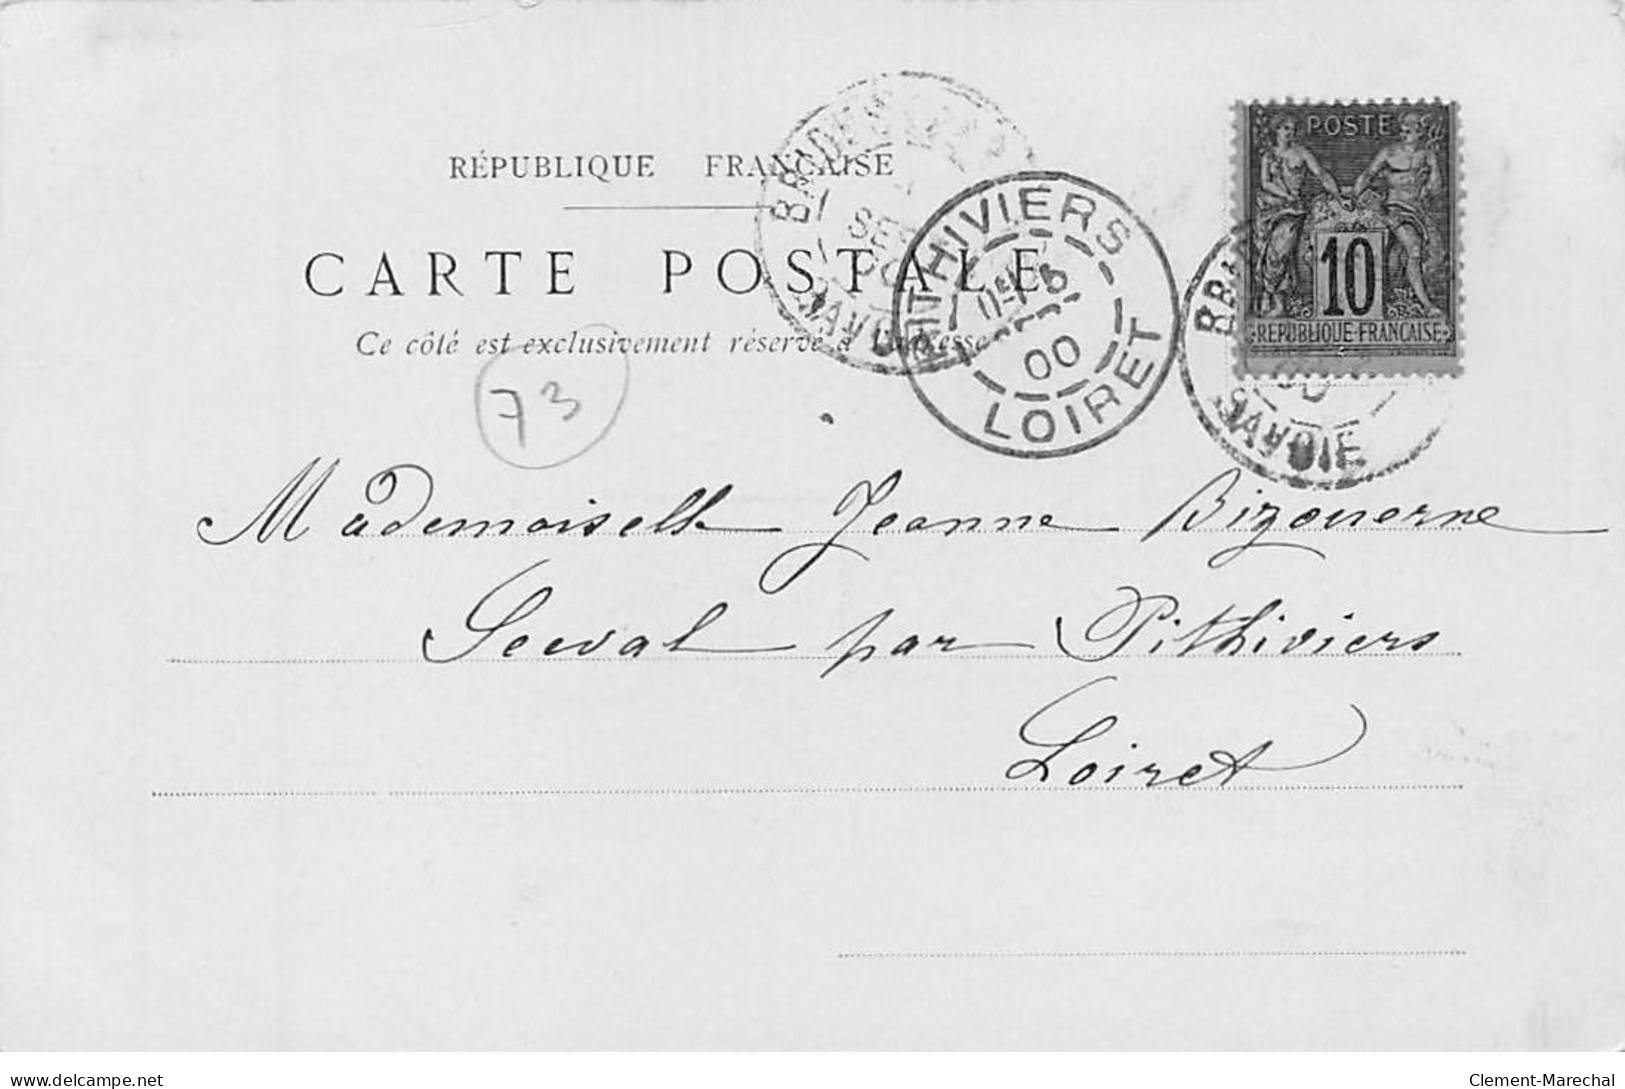 RÉPUBLIQUE FRANÇAISE
CARTE POSTALE
Ce côté est exclusivement réservé à l'adresse
73
POSTE
10
REPUBLIQUE FRANÇAISE
PITHIVIERS
00
LOIRET
SAVOIE
SAVOIE
Mademoiselle Jeanne Bizouerne
par Pithiviers
Loiret
delcampe.net
Clement-Marechal